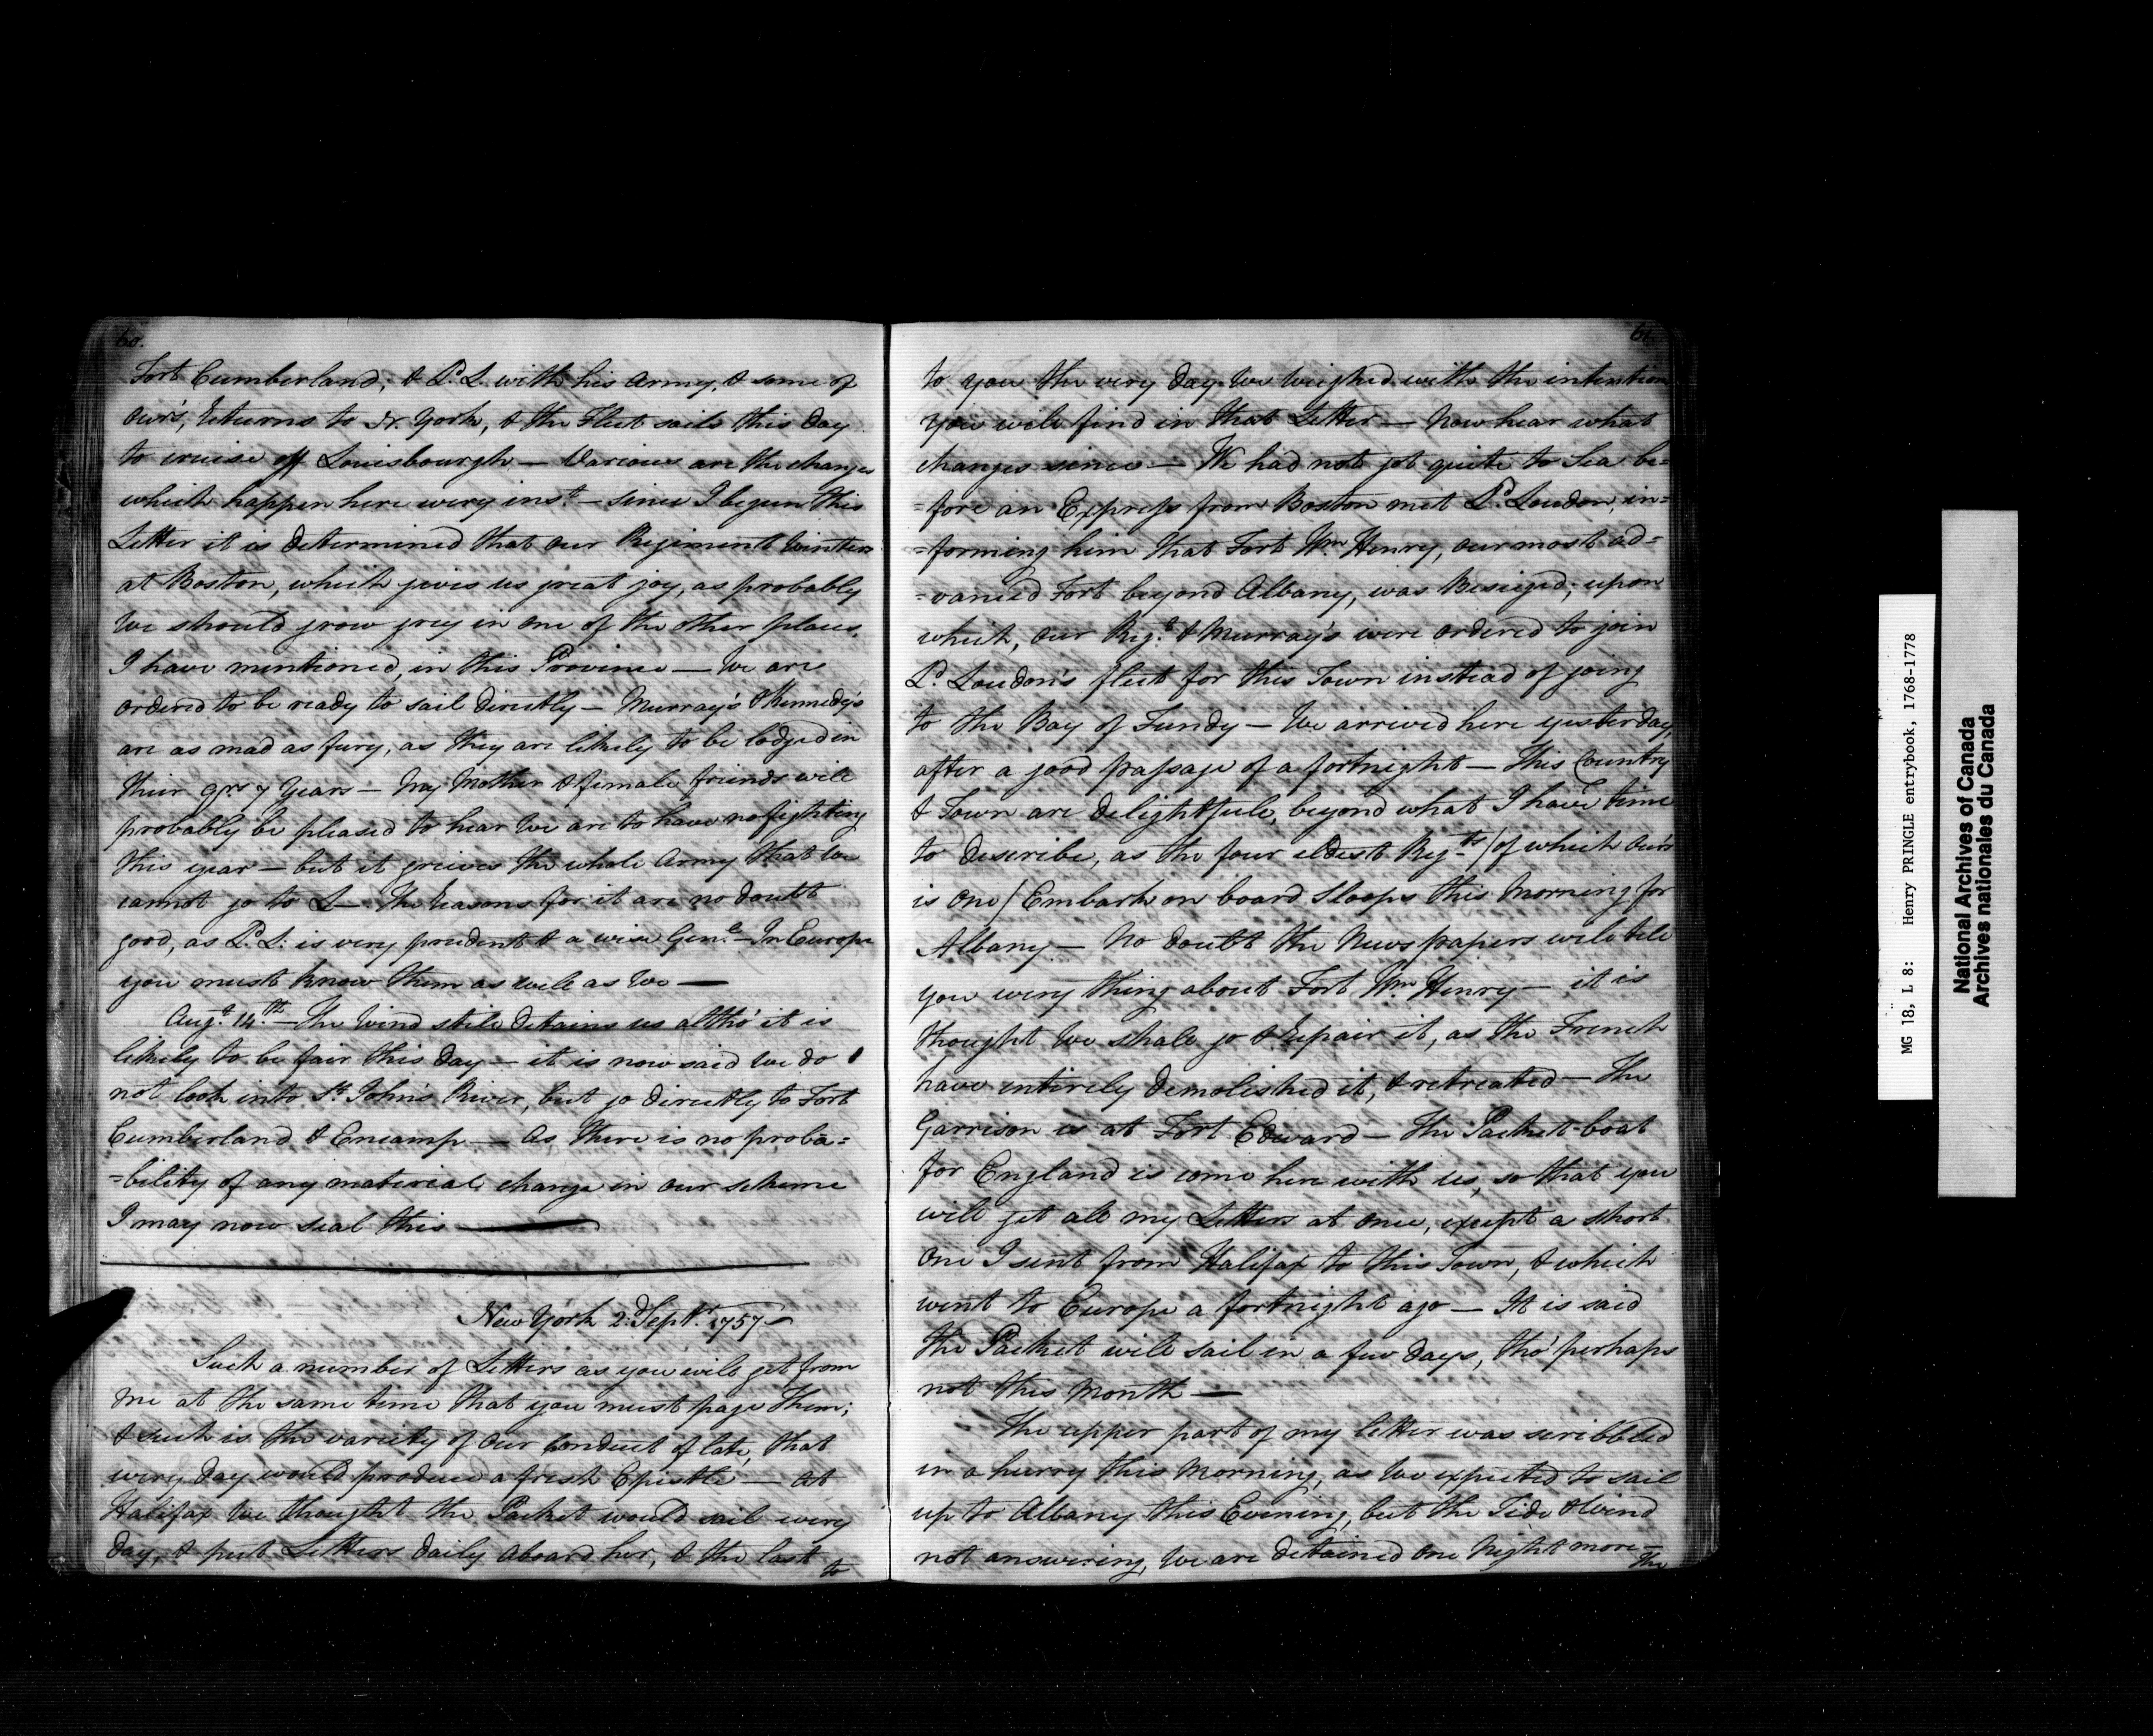 60.
Fort Cumberland; & Ld. L. with his Army, & some of
our's, returns to N. York, & the Fleet sails this Day
to cruise off Louisbourgh — Various are the changes
which happen here every inst. — since I begun this
Letter it is determined that our Regiment Winters
at Boston, which gives us great joy, as probably
We should grow grey in one of the other places,
I have mentioned, in this Province — We are
ordered to be ready to sail Directly — Murray's & Kennedy's
are as mad as fury, as they are likely to be lodged in
their Qrs 7 Years — My Mother & female friends will
probably be pleased to hear We are to have no fighting
this year — but it grieves the whole Army that We
cannot go to L— The reasons for it are no doubt
good, as Ld. L: is very prudent & a wise Genl.— In Europe
you must know them as well as We —
Augt. 14th. — The Wind still Detains us altho' it is
likely to be fair this Day — it is now said We do
not look into St. John's River, but go directly to Fort
Cumberland & Encamp — As there is no proba=
=bility of any material change in our scheme
I may now seal this —
New York 2d. Septr. 1757 —
Such a number of Letters as you will get from
me at the same time that you must page them;
& such is the variety of our Conduct of late, that
every Day would produce a fresh Epistle — At
Halifax We thought the Packet would sail every
Day, & put Letters daily aboard her, & the last
to
61.
to you the very Day We Weighed with the intention
you will find in that Letter — Now hear what
changes since — We had not got quite to Sea be=
=fore an Express from Boston met Ld. Loudon, in=
=forming him that Fort Wm. Henry, our most ad=
=vanced Fort beyond Albany, was Besieged; upon
which, our Regt. & Murray's were ordered to join
Ld. Loudon's fleet for this Town instead of going
to the Bay of Fundy — We arrived here yesterday,
after a good passage of a fortnight — This Country
& Town are Delightfull, beyond what I have time
to describe, as the four eldest Regts. / of which Our's
is one / Embark on board Sloops this Morning for
Albany — No doubt the News papers will tell
you every thing about Fort Wm. Henry — it is
thought We shall go & repair it, as the French
have entirely Demolished it, & retreated — The
Garrison is at Fort Edward — The Packet-boat
for England is come here with us, so that you
will get all my Letters at once, except a short
one I sent from Halifax to this Town, & which
went to Europe a fortnight ago — It is said
the Packet will sail in a few Days, tho' perhaps
not this Month —
The upper part of my letter was scribbled
in a hurry this Morning, as We expected to sail
up to Albany this Evening, but the Tide & Wind
not answering, We are Detained one Night more —
The
MG 18, L 8: Henry PRINGLE entrybook, 1768-1778
National Archives of Canada
Archives nationales du Canada